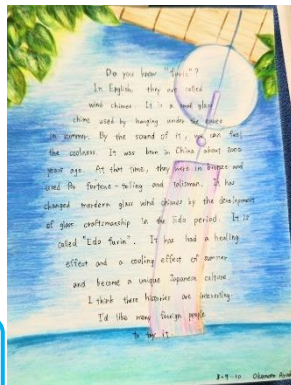 Do you know "furin"?
In English, they are called
wind chimes. It is a small glass
chime used by hanging under the eaves
in summer. By the sound of it, we can feel
the coolness. It was born in China about 2000
years ago. At that time, they were in bronze and
used for fortune-telling and talisman. It has
changed mordern glass wind chimes by the development
of glass craftsmanship in the Edo period. It is
called "Edo furin". It has had a healing
effect and a cooling effect of summer
and become a unique Japanese culture.
I think these histories are interesting.
I'd like many foreign people
to try it.
3-9-10 Okamoto